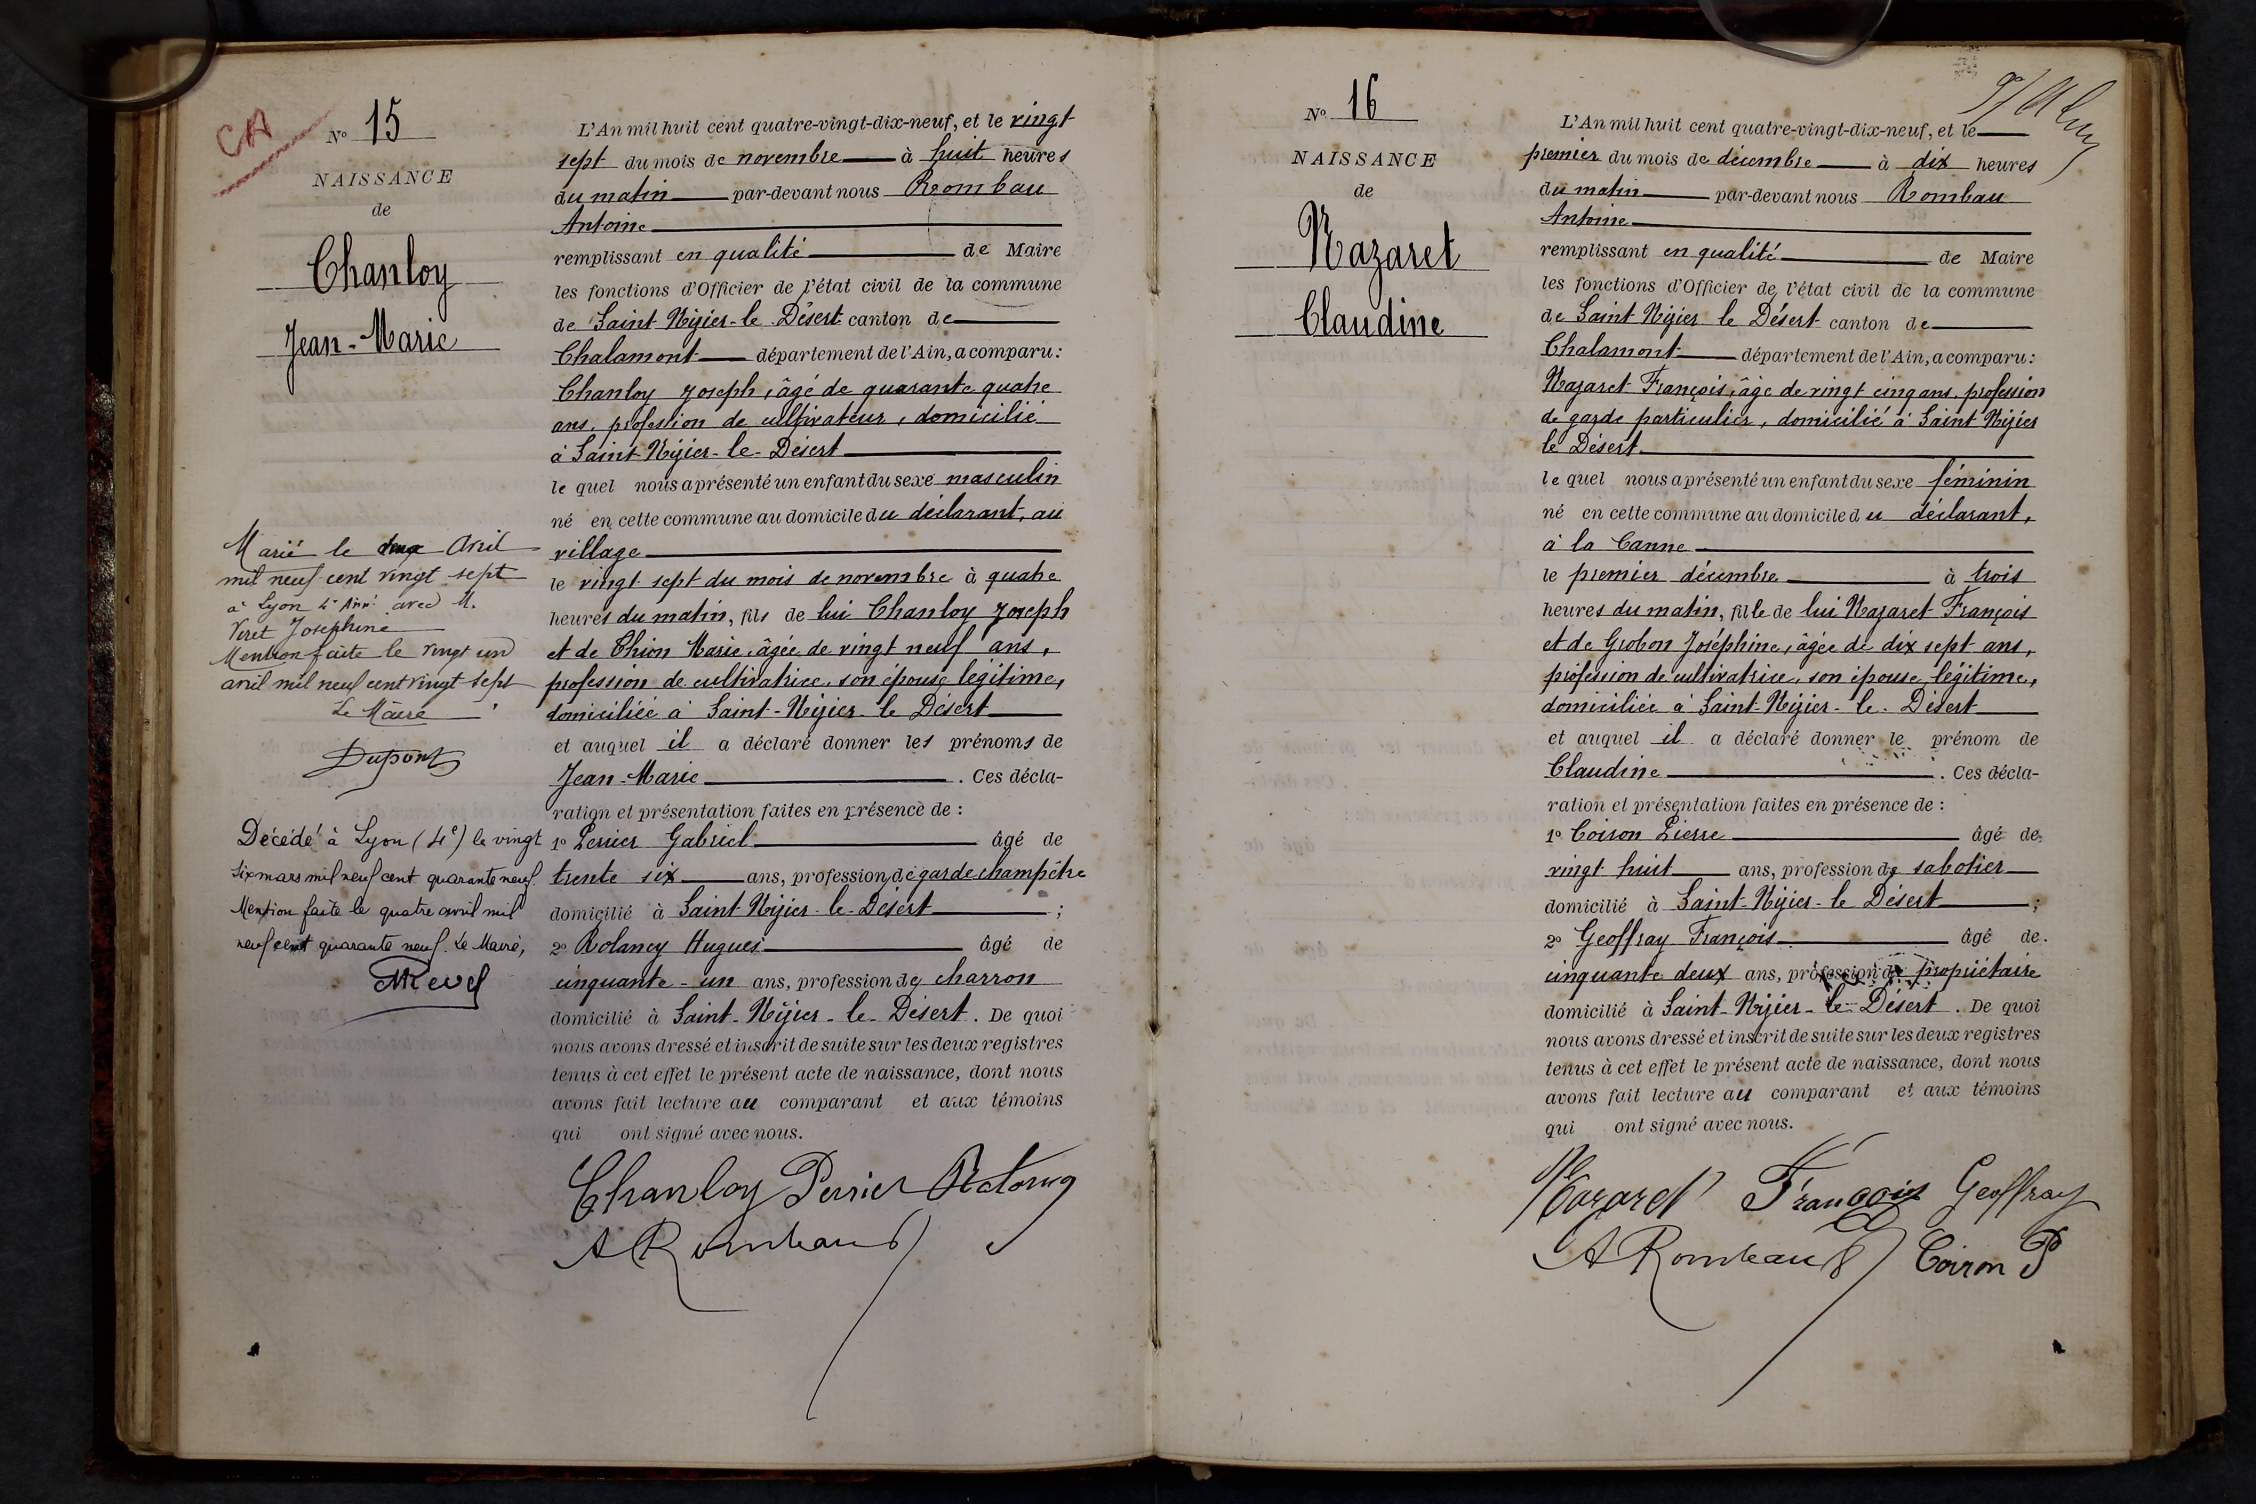 CA
N° 15
NAISSANCE
de
Chanloy
Jean-Marie
Marié le deux Avril
mil neuf cent vingt sept
à Lyon 4e Arr.t avec M.
Viret Joséphine
Mention faite le vingt un
avril mil neuf cent vingt sept
Le Maire
Dupont
Décédé à Lyon (4e) le vingt
six mars mil neuf cent quarante neuf.
Mention faite le quatre avril mil
neuf cent quarante neuf. Le Maire,
Revel
L'An mil huit cent quatre-vingt-dix-neuf, et le vingt
sept du mois de novembre à huit heures
du matin par-devant nous Rombau
Antoine
remplissant en qualité de Maire
les fonctions d'Officier de l'état civil de la commune
de Saint-Nizier-le-Désert canton de
Chalamont département de l'Ain, a comparu :
Chanloy Joseph, âgé de quarante quatre
ans, profession de cultivateur, domicilié
à Saint-Nizier-le-Désert
le quel nous a présenté un enfant du sexe masculin
né en cette commune au domicile du déclarant, au
village
le vingt sept du mois de novembre à quatre
heures du matin, fils de lui Chanloy Joseph
et de Chion Marie, âgée de vingt neuf ans,
profession de cultivatrice, son épouse légitime,
domiciliée à Saint-Nizier-le-Désert
et auquel il a déclaré donner les prénoms de
Jean-Marie . Ces décla-
ration et présentation faites en présence de :
1° Perrier Gabriel âgé de
trente six ans, profession de garde champêtre
domicilié à Saint-Nizier-le-Désert ;
2° Rolancy Hugues âgé de
cinquante-un ans, profession de charron
domicilié à Saint-Nizier-le-Désert. De quoi
nous avons dressé et inscrit de suite sur les deux registres
tenus à cet effet le présent acte de naissance, dont nous
avons fait lecture au comparant et aux témoins
qui ont signé avec nous.
Chanloy Perrier
A Rombaud
N° 16
NAISSANCE
de
Nazaret
Claudine
L'An mil huit cent quatre-vingt-dix-neuf, et le
premier du mois de décembre à dix heures
du matin par-devant nous Rombau
Antoine
remplissant en qualité de Maire
les fonctions d'Officier de l'état civil de la commune
de Saint-Nizier le Désert canton de
Chalamont département de l'Ain, a comparu :
Nazaret François, âgé de vingt cinq ans, profession
de garde particulier, domicilié à Saint Nizier
le Désert
le quel nous a présenté un enfant du sexe féminin
né en cette commune au domicile du déclarant,
à la Canne
le premier décembre à trois
heures du matin, fille de lui Nazaret François
et de Grobon Joséphine, âgée de dix sept ans,
profession de cultivatrice, son épouse légitime,
domiciliée à Saint-Nizier-le-Désert
et auquel il a déclaré donner le prénom de
Claudine . Ces décla-
ration et présentation faites en présence de :
1° Coiron Pierre âgé de
vingt huit ans, profession de sabotier
domicilié à Saint-Nizier-le Désert ;
2° Geoffray François âgé de
cinquante deux ans, profession de propriétaire
domicilié à Saint-Nizier-le-Désert. De quoi
nous avons dressé et inscrit de suite sur les deux registres
tenus à cet effet le présent acte de naissance, dont nous
avons fait lecture au comparant et aux témoins
qui ont signé avec nous.
Nazaret François Geoffray
A Rombaud Coiron P